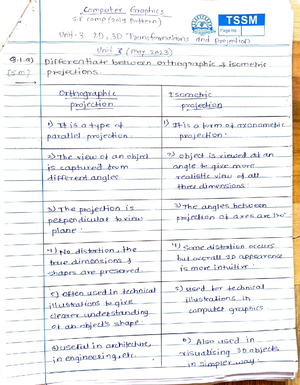 Computer Graphics
S.E comp (2019 pattern)
TSSM
Page No.
Unit-3 2D, 3D Transformations and Projection
Unit 3 (May 2023)
Q.1.a) Differentiate between orthographic & isometric
[5m] projections.
Orthographic projection
Isometric projection
1) It is a type of
parallel projection.
1) It is a form of axonometric
projection.
2) The view of an object
is captured from
different angles
2) object is viewed at an
angle to give more
realistic view of all
three dimensions
3) The projection is
perpendicular to view
plane.
3) The angles between
projection of axes are 120°
4) No distortion, the
true dimensions &
shapes are preserved.
4) Some distortion occurs
but overall 3D appearence
is more intuitive.
5) often used in technical
illustrations to give
clearer understanding
of an object's shape.
5) used for technical
illustrations in
computer graphics
6) useful in architecture,
in engineering, etc.
6) Also used in
visualising 3D objects
in simpler way.